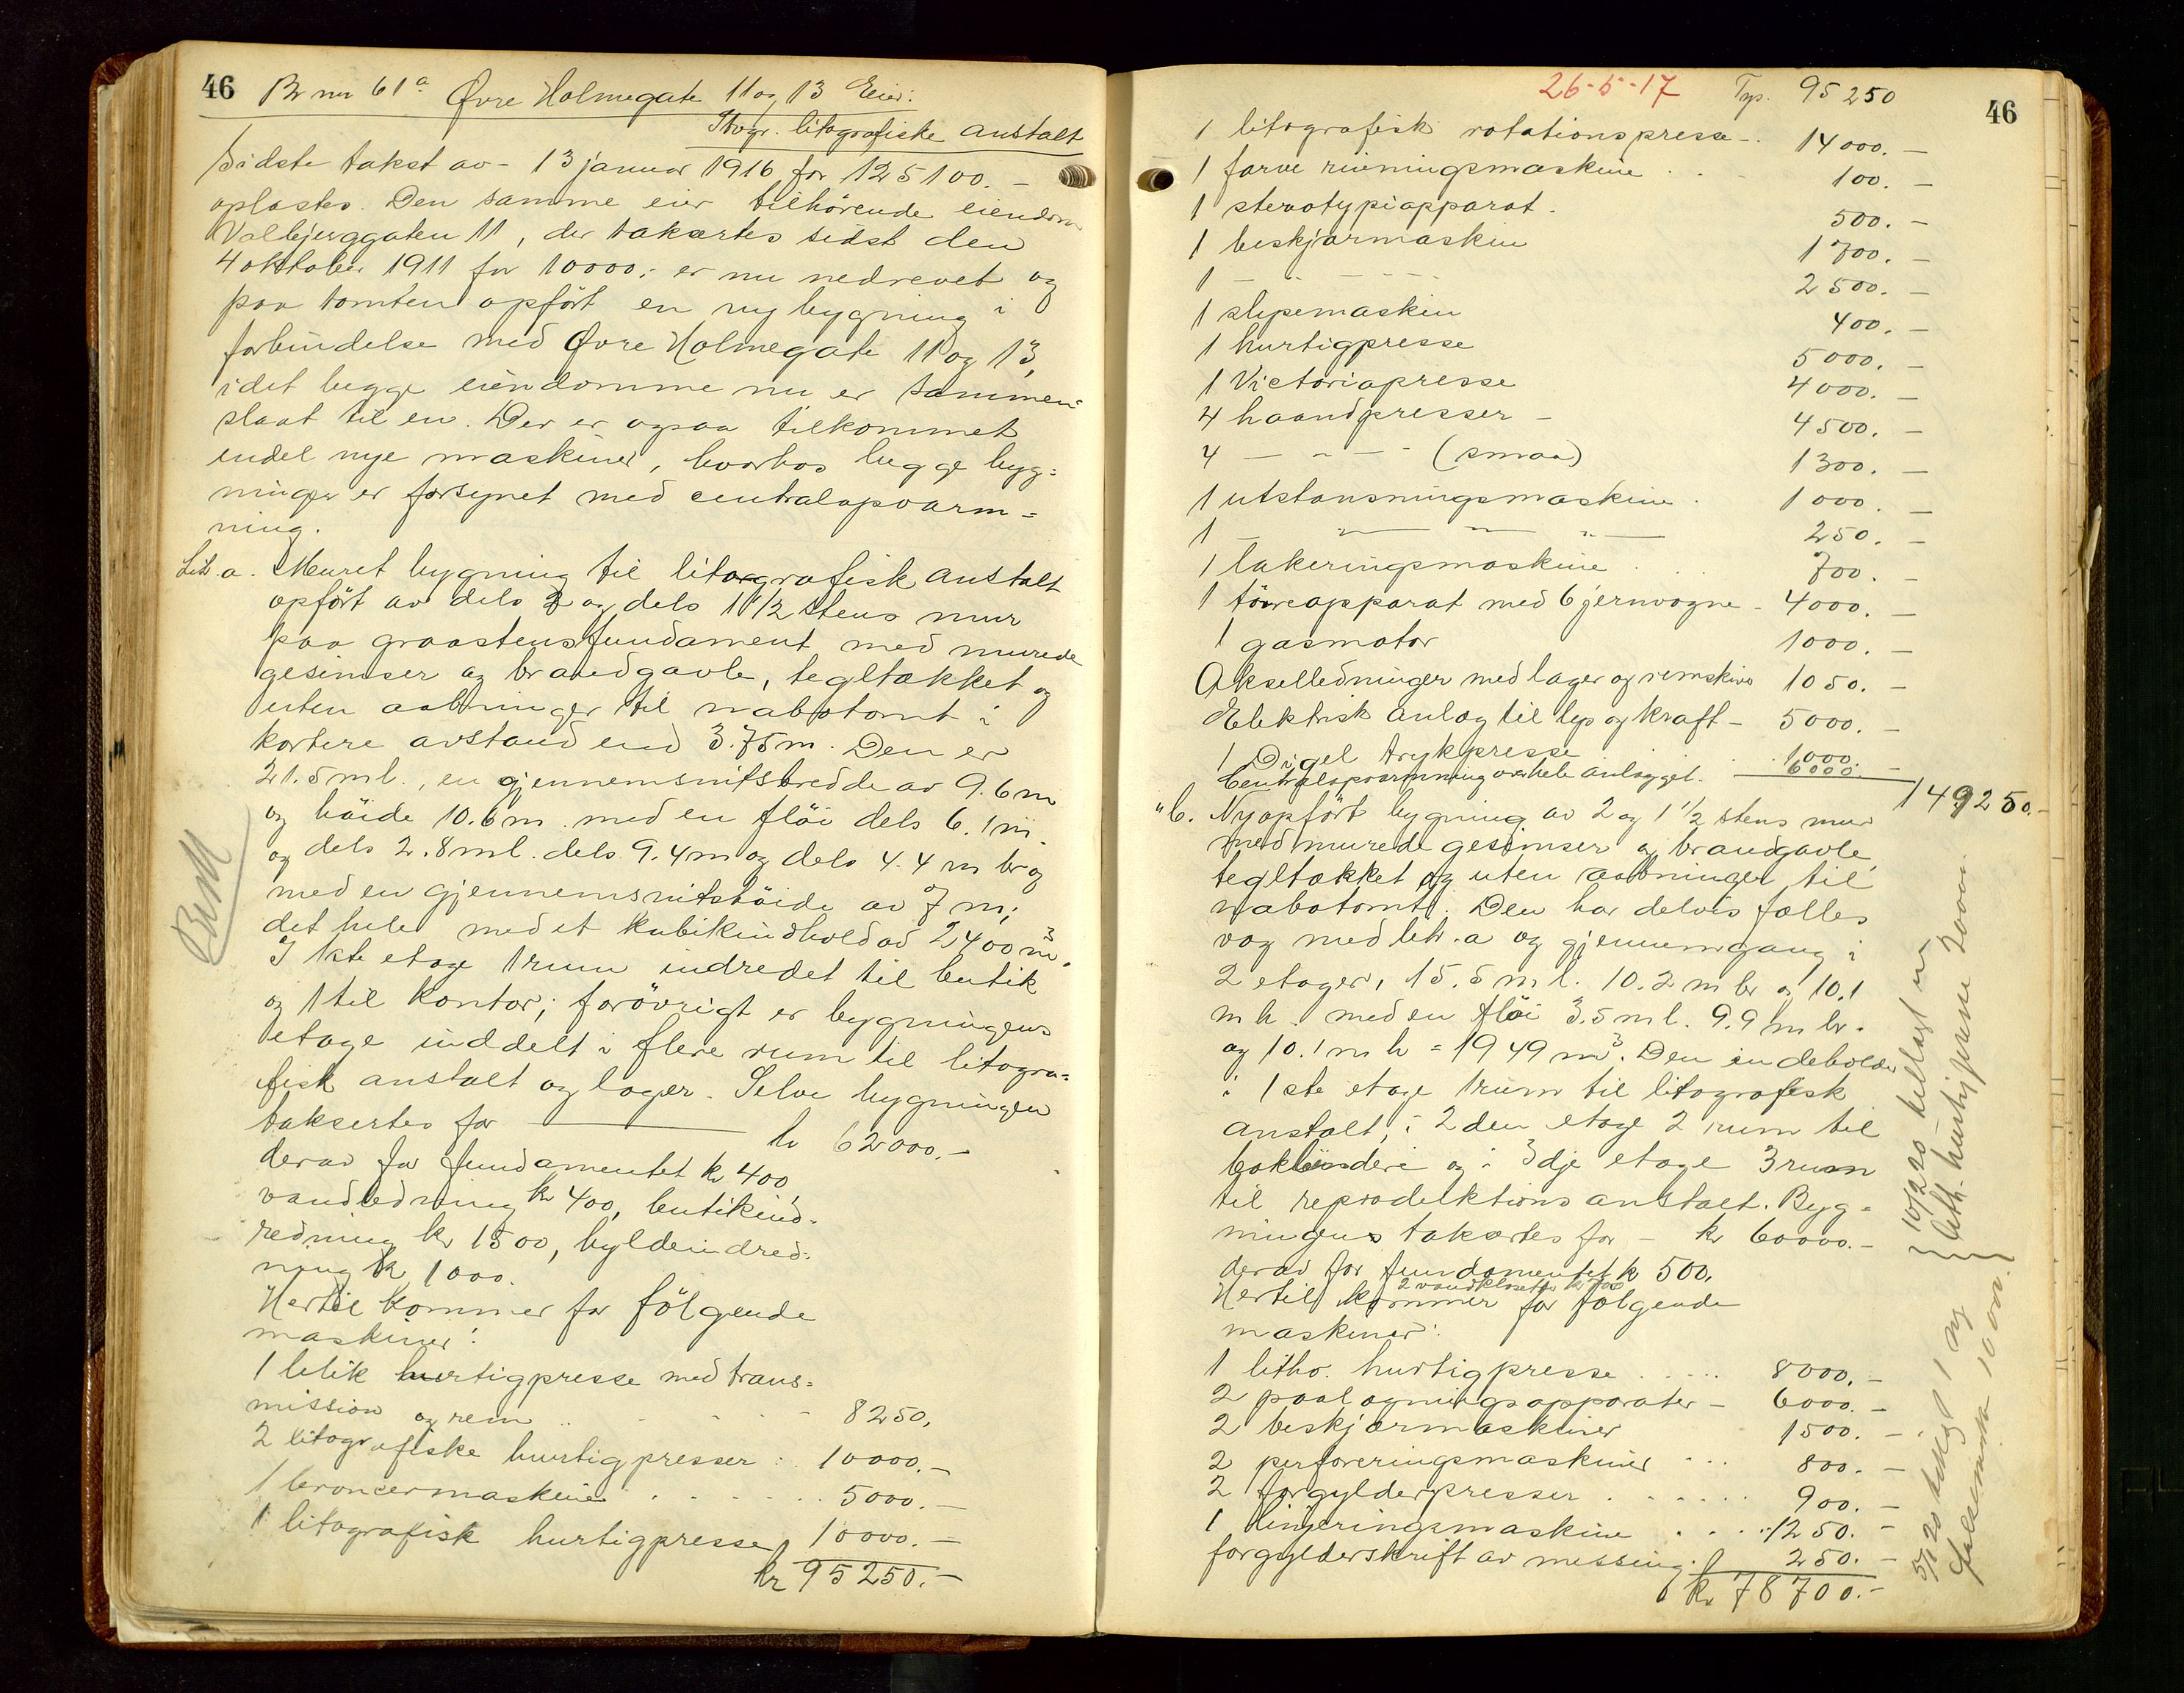 46 Br nr 61a Øvre Holmegate 11 og 13 Eier:
Stvgr. litografiske anstalt
Sidste takst av - 13 januar 1916 for 125100.-
oplæstes. Den samme eier tilhörende eiendom
Valbjerggaten 11, der taksertes sidst den
4 oktober 1911 for 10000.- er nu nedrevet og
paa tomten opfört en ny bygning i
forbindelse med Øvre Holmegate 11 og 13,
idet begge eiendomme nu er sammen-
slaat til en. Der er ogsaa tilkommet
endel nye maskiner, hvorhos begge byg=
ninger er forsynet med centralopvarm=
ning.
Lit. a. Muret bygning til litografisk anstalt
opfört av dels 2 og dels 1 1/2 stens mur
paa graastensfundament med murede
gesimser og brandgavle, tegltækket og
uten aabninger til nabotomt i
kortere avstand end 3.75 m. Den er
21.5 m l., en gjennemsnitsbredde av 9.6 m
og höide 10.6 m. med en flöi dels 6.1 m
og dels 2.8 m l. dels 9.4 m og dels 4.4 m br og
med en gjennemsnitshöide av 7 m;
det hele med et kubikindhold av 2400 m3.
I 1ste etage 1 rum indredet til butik
og 1 til kontor; forövrigt er bygningens
etage inddelt i flere rum til litogra=
fisk anstalt og lager. Selve bygningen
taksertes for kr 62000.-
derav for fundamentet kr 400,
vandledning kr 400, butikind-
redning kr 1500, hyldeindred-
ning kr 1000.
Hertil kommer for fölgende
maskiner:
1 lelik hurtigpresse med trans=
mission og rem 8250,
2 litografiske hurtigpresser: 10000.-
1 broncermaskine 5000.-
1 litografisk hurtigpresse 10000.-
kr 95250.-
Bestt
26-5-17 Trp. 95250 46
1 litografisk rotationspresse - 14000.-
1 farve rivningsmaskine 100.-
1 stereotypiapparat. 500.-
1 beskjærmaskin 1700.-
1 - " - - - - 2500.-
1 slipemaskin 400.-
1 hurtigpresse 5000.-
1 Victoriapresse 4000.-
4 haandpresser - 4500.-
4 - " - - (smaa) 1300.-
1 utstansningsmaskine 1000.-
1 - " - " - " - 250.-
1 lakeringsmaskine 700.-
1 törreapparat med 6 jernvogne - 4000.-
1 gasmotor 1000.-
Akselledninger med lager og remskiver 1050.-
Elektrisk anlæg til lys og kraft - 5000.-
1 Digel trykpresse 1000.-
Centralopvarmning over hele anlægget. 6000.
149250.-
" b. Nyopfört bygning av 2 og 1 1/2 stens mur
med murede gesimser og brandgavle,
tegltækket og uten aabninger til
nabotomt. Den har delvis fælles
væg med litr. a og gjennemgang i
2 etager, 15.5 m l. 10.2 m br og 10.1
m h. med en flöi 3.5 m l. 9.9 m br.
og 10.1 m h = 1949 m3. Den indeholder
i 1ste etage 1 rum til litografisk
anstalt, i 2den etage 2 rum til
bokbinderi og i 3dje etage 3 rum
til reproduktionsanstalt. Byg=
ningens taksertes for - kr 60000.-
derav for fundamentet kr 500.
2 vandklosetter kr
Hertil kommer for fölgende
maskiner:
1 litho. hurtigpresse 8000.-
2 paalagningsapparater - 6000.-
2 beskjærmaskiner 1500.-
2 perforeringsmaskiner 800.-
2 forgylderpresser 900.-
1 linjeringsmaskine 1250.-
forgylderskrift av messing. 250.-
kr 78700.-
10/2 20 tillagt ny
lith. hurtigpresse 20000.
5/8 20 tillagt 1 ny
falsemaskin 10000.